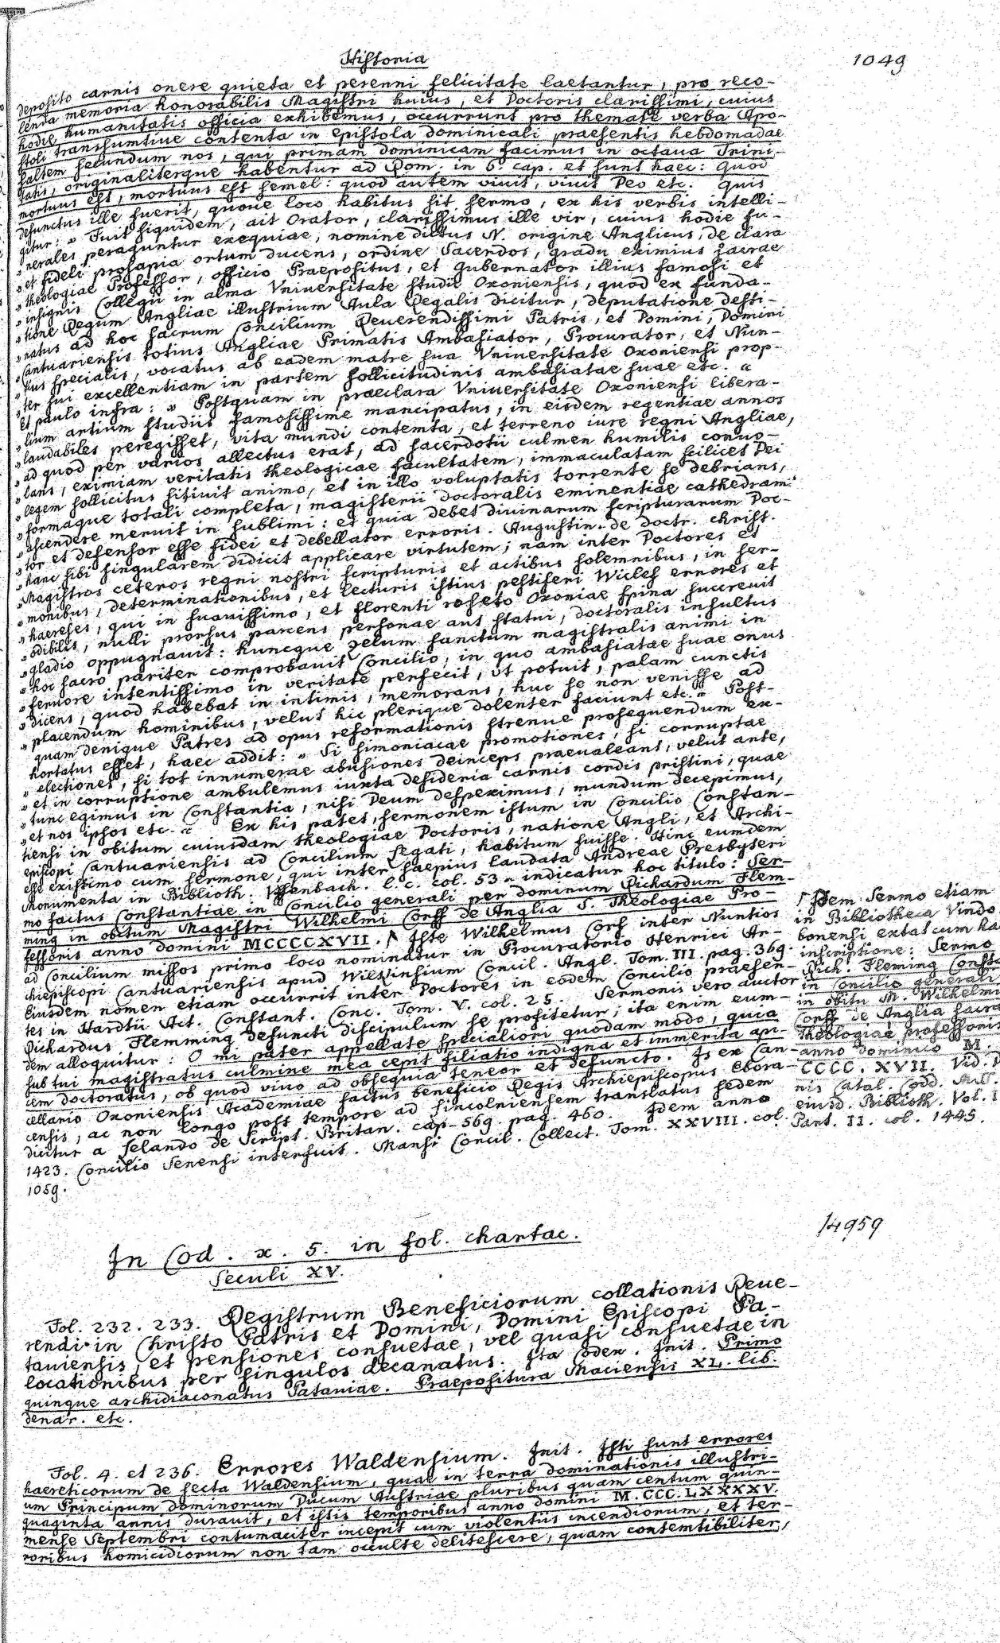 Historia
1049
deposito carnis onere quieta et perenni felicitate laetantur, pro reco-
lenda memoria honorabilis Magistri huius, et Doctoris clarissimi, cuius
hodie humanitatis officia exhibemus, occurrunt pro themate verba Apo-
stoli transsumtive contenta in epistola dominicali praesentis hebdomadae
saltem secundum nos, qui primam dominicam facimus in octava Trini-
tatis, originaliterque habentur ad Rom. in 6. cap. et sunt haec: Quod
mortuus est, mortuus est semel: quod autem vivit, vivit Deo etc. Quis
defunctus ille fuerit, quove loco habitus sit sermo, ex his verbis intelli-
gitur: „ Fuit siquidem, ait Orator, clarissimus ille vir, cuius hodie fu-
„ nerales peraguntur exequiae, nomine dictus N. origine Anglicus, de clara
„ et fideli prosapia ortum ducens, ordine Sacerdos, gradu eximius sacrae
„ theologiae Professor, officio Praepositus, et gubernator illius famosi et
„ insignis Collegii in alma Vniversitate studii Oxoniensis, quod ex funda-
„ tione Regum Angliae illustrium Aula Regalis dicitur, deputatione desti-
„ natus ad hoc sacrum Concilium Reverendissimi Patris, et Domini, Domini
„ Cantuariensis totius Angliae Primatis Ambasiator, Procurator, et Nun-
„ tius specialis, vocatus ab eadem matre sua Vniversitate Oxoniensi prop-
„ ter sui excellentiam in partem sollicitudinis ambasiatae suae etc. “
Et paulo infra: „ Postquam in praeclara Vniversitate Oxoniensi libera-
„ lium artium studiis famosissime mancipatus, in eisdem regentiae annos
„ laudabiles peregisset, vita mundi contemta, et terreno iure regni Angliae,
„ ad quod per varios allectus erat, ad sacerdotii culmen humilis convo-
„ lans, eximiam veritatis theologicae facultatem, immaculatam scilicet Dei
„ legem sollicitus sitivit animo, et in illo voluptatis torrente se debrians,
„ formaque totali completa, magisterii doctoralis eminentiae cathedram
„ scendere meruit in sublimi: et quia debet divinarum scripturarum Doc-
„ tor et defensor esse fidei et debellator erroris. Augustin. de doctr. christ.
„ hanc sibi singularem didicit applicare virtutem; nam inter Doctores et
„ Magistros ceteros regni nostri scripturis et actibus solemnibus, in ser-
„ monibus, determinationibus, et lecturis istius pestiferi Wiclef errores et
„ haereses, qui in suavissimo, et florenti roseto Oxoniae spina succrevit
„ odibilis, nulli prorsus parcens personae aut statui, doctoralis insultus
„ gladio oppugnavit: huncque zelum sanctum magistralis animi in
„ hoc sacro pariter comprobavit Concilio, in quo ambasiatae suae onus
„ fervore intentissimo in veritate perfecit, ut potuit, palam cunctis
„ dicens, quod habebat in intimis, memorans, huc se non venisse ad
„ placendum hominibus, velut hic plerique dolenter faciunt etc.“ Post-
quam denique Patres ad opus reformationis strenue prosequendum ex-
hortatus esset, haec addit: „ Si simoniacae promotiones, si corruptae
„ electiones, si tot innumerae abusiones deinceps praevaleant, velut ante,
„ et in corruptione ambulemus iuxta desideria carnis cordis pristini, quae
„ tunc egimus in Constantia, nisi Deum despeximus, mundum decepimus,
„ et nos ipsos etc. “ Ex his patet, sermonem istum in Concilio Constan-
tiensi in obitum cuiusdam theologiae Doctoris, natione Angli, et Archi-
episcopi Cantuariensis ad Concilium Legati, habitum fuisse. Hinc eumdem
esse existimo cum sermone, qui inter saepius laudata Andreae Presbyteri
Monumenta in Biblioth. Uffenbach. l. c. col. 53. indicatur hoc titulo: Ser-
mo factus Constantiae in Concilio generali per dominum Richardum Flem-
ming in obitum Magistri Wilhelmi Corff de Anglia S. Theologiae Pro-
fessoris anno domini MCCCCXVII. Iste Wilhelmus Corf inter Nuntios
ad Concilium missos primo loco nominatur in Procuratorio Henrici Ar-
chiepiscopi Cantuariensis apud Wilkinsium Concil. Angl. Tom. III. pag. 369.
Eiusdem nomen etiam occurrit inter Doctores in eodem Concilio praesen-
tes in Hardtii Act. Constant. Conc. Tom. V. col. 25. Sermonis vero auctor
Richardus Flemming defuncti discipulum se profitetur; ita enim eum-
dem alloquitur: O mi pater appellate specialiori quodam modo, quia
sub tui magistratus culmine mea cepit filiatio indigna et immerita api-
cem doctoratus, ob quod vivo ad obsequia teneor et defuncto. Is ex Can-
cellario Oxoniensis Academiae factus beneficio Regis Archiepiscopus Ebora-
censis, ac non longo post tempore ad Lincolniensem translatus sedem
dicitur a Lelando de Script. Britan. cap. 569. pag. 460. Idem anno
1423. Concilio Senensi interfuit. Mansi Concil. Collect. Tom. XXVIII. col.
1059.
Idem Sermo etiam
in Bibliotheca Vindo
bonensi extat cum ha
inscriptione: Sermo
Rich. Fleming Consta
in Concilio generali
in obitu M. Wilhelmi
Corff de Anglia sacra
Theologiae professoris
anno dominico M.
CCCC. XVII. Vid. D
nis Catal. Codd. MSS.
eiusd. Biblioth. Vol. I
Part. II. col. 1445.
14959
In Cod. x. 5. in fol. chartac.
Seculi XV.
Fol. 232. 233. Registrum Beneficiorum collationis Reve-
rendi in Christo Patris et Domini, Domini Episcopi Pa-
taviensis, et pensiones consuetae, vel quasi consuetae in
locationibus per singulos decanatus. Ita Codex. Init. Primo
quinque archidiaconatus Pataviae. Praepositura Maciensis XL. lib.
denar. etc.
Fol. 4. et 236. Errores Waldensium. Init. Isti sunt errores
haereticorum de secta Waldensium, quae in terra dominationis illustri-
um Principum dominorum Ducum Austriae pluribus quam centum quin-
quaginta annis duravit, et istis temporibus anno domini M.CCC.LXXXXV.
mense Septembri contumaciter incepit cum violentiis incendiorum, et ter-
roribus homicidiorum non tam occulte delitescere, quam contemtibiliter,